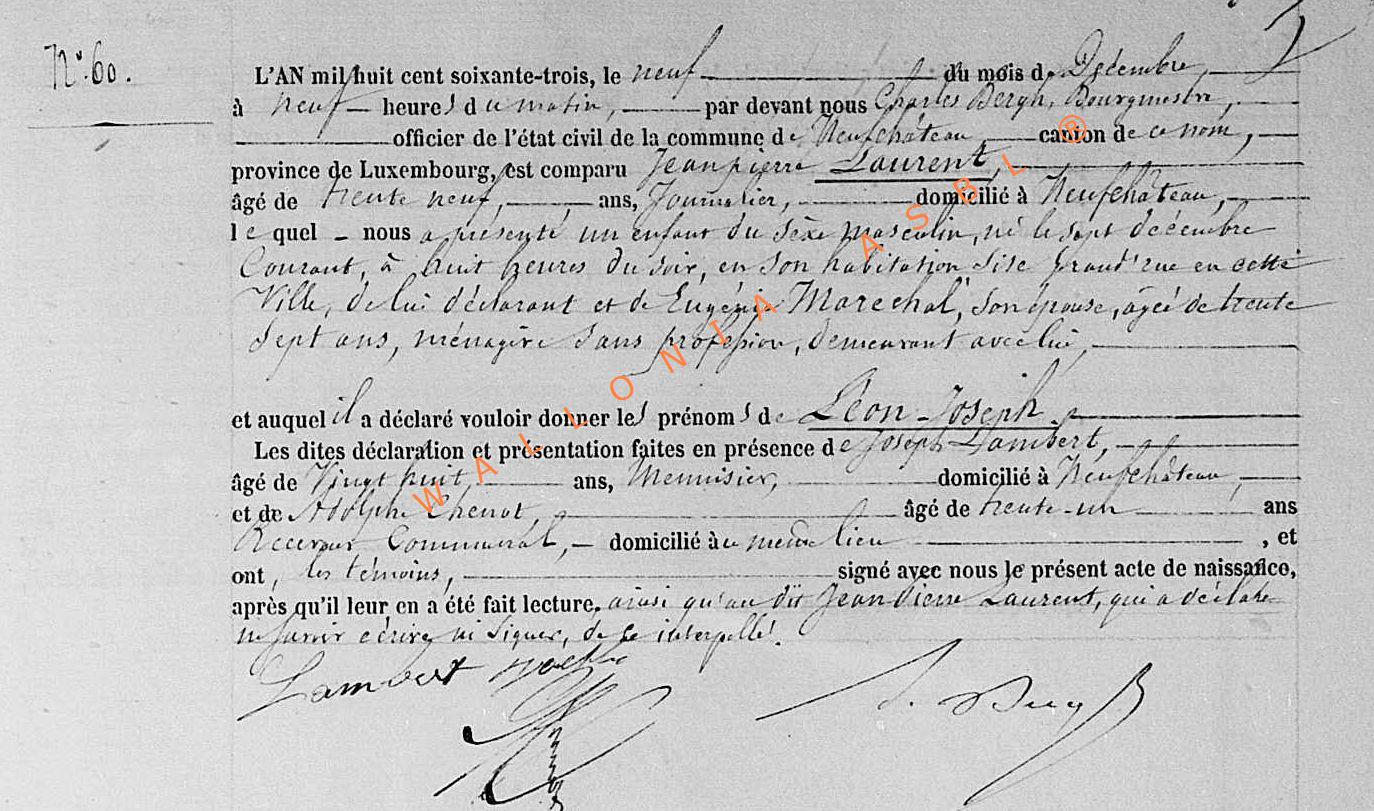 N° 60.
L'AN mil huit cent soixante-trois, le neuf du mois de Décembre,
à neuf heures du matin, par devant nous Charles Bergh, Bourgmestre,
officier de l'état civil de la commune de Neufchâteau, canton de ce nom,
province de Luxembourg, est comparu Jeanpierre Laurent,
âgé de trente neuf, ans, Journalier, domicilié à Neufchâteau,
le quel nous a présenté un enfant du sèxe masculin, né le sept décembre
Courant, à huit heures du soir, en son habitation sise grand'rue en cette
Ville, de lui déclarant et de Eugénie Marechal, son épouse, agée de trente
sept ans, ménagère sans profession, demeurant avec lui,
et auquel il a déclaré vouloir donner les prénoms de Léon Joseph.
Les dites déclaration et présentation faites en présence de Joseph Lambert,
âgé de Vingt huit, ans, Menuisier, domicilié à Neufchâteau,
et de Adolphe Chenot, âgé de trente-un ans
Receveur Communal, domicilié au même lieu , et
ont, les témoins, signé avec nous le présent acte de naissance,
après qu'il leur en a été fait lecture, ainsi qu'au dit Jean Pierre Laurent, qui a déclaré
ne savoir écrire ni signer, de ce interpellé.
Lambert
WALLONIA ASBL ®